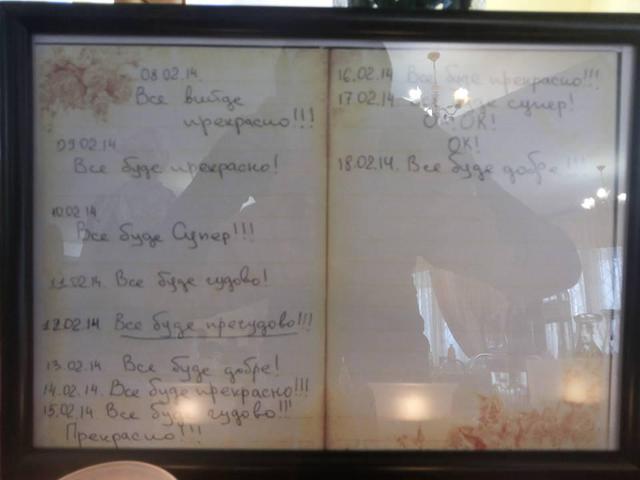 08.02.14.
Все вийде
прекрасно!!!
09.02.14
Все буде прекрасно!
10.02.14.
Все буде Супер!!!
11.02.14. Все буде чудово!
12.02.14 Все буде пречудово!!!
13.02.14. Все буде добре!
14.02.14. Все буде прекрасно!!!
15.02.14 Все буде чудово!!!
Прекрасно!!!
16.02.14 Все буде прекрасно!!!
17.02.14 Все буде супер!
ОК!
ОК!
18.02.14. Все буде добре!!!